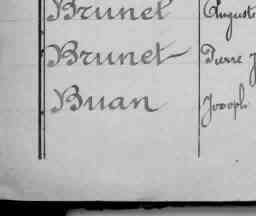 Brunet Auguste
Brunet Pierre J
Buan Joseph